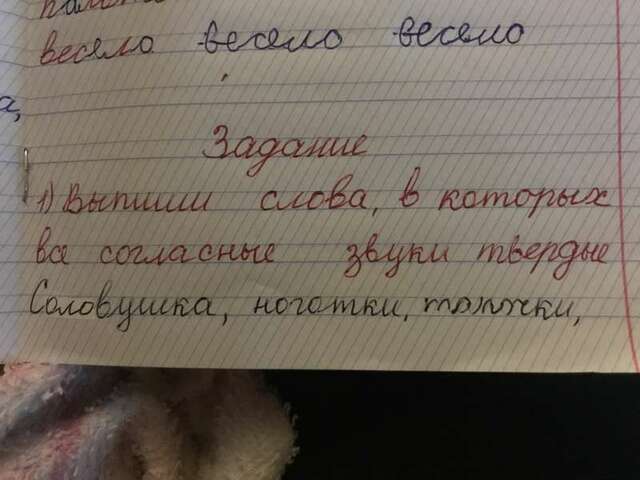 весело весело весело
а,
Задание
1) Выпиши слова, в которых
все согласные звуки твердые
Соловушка, ноготки,